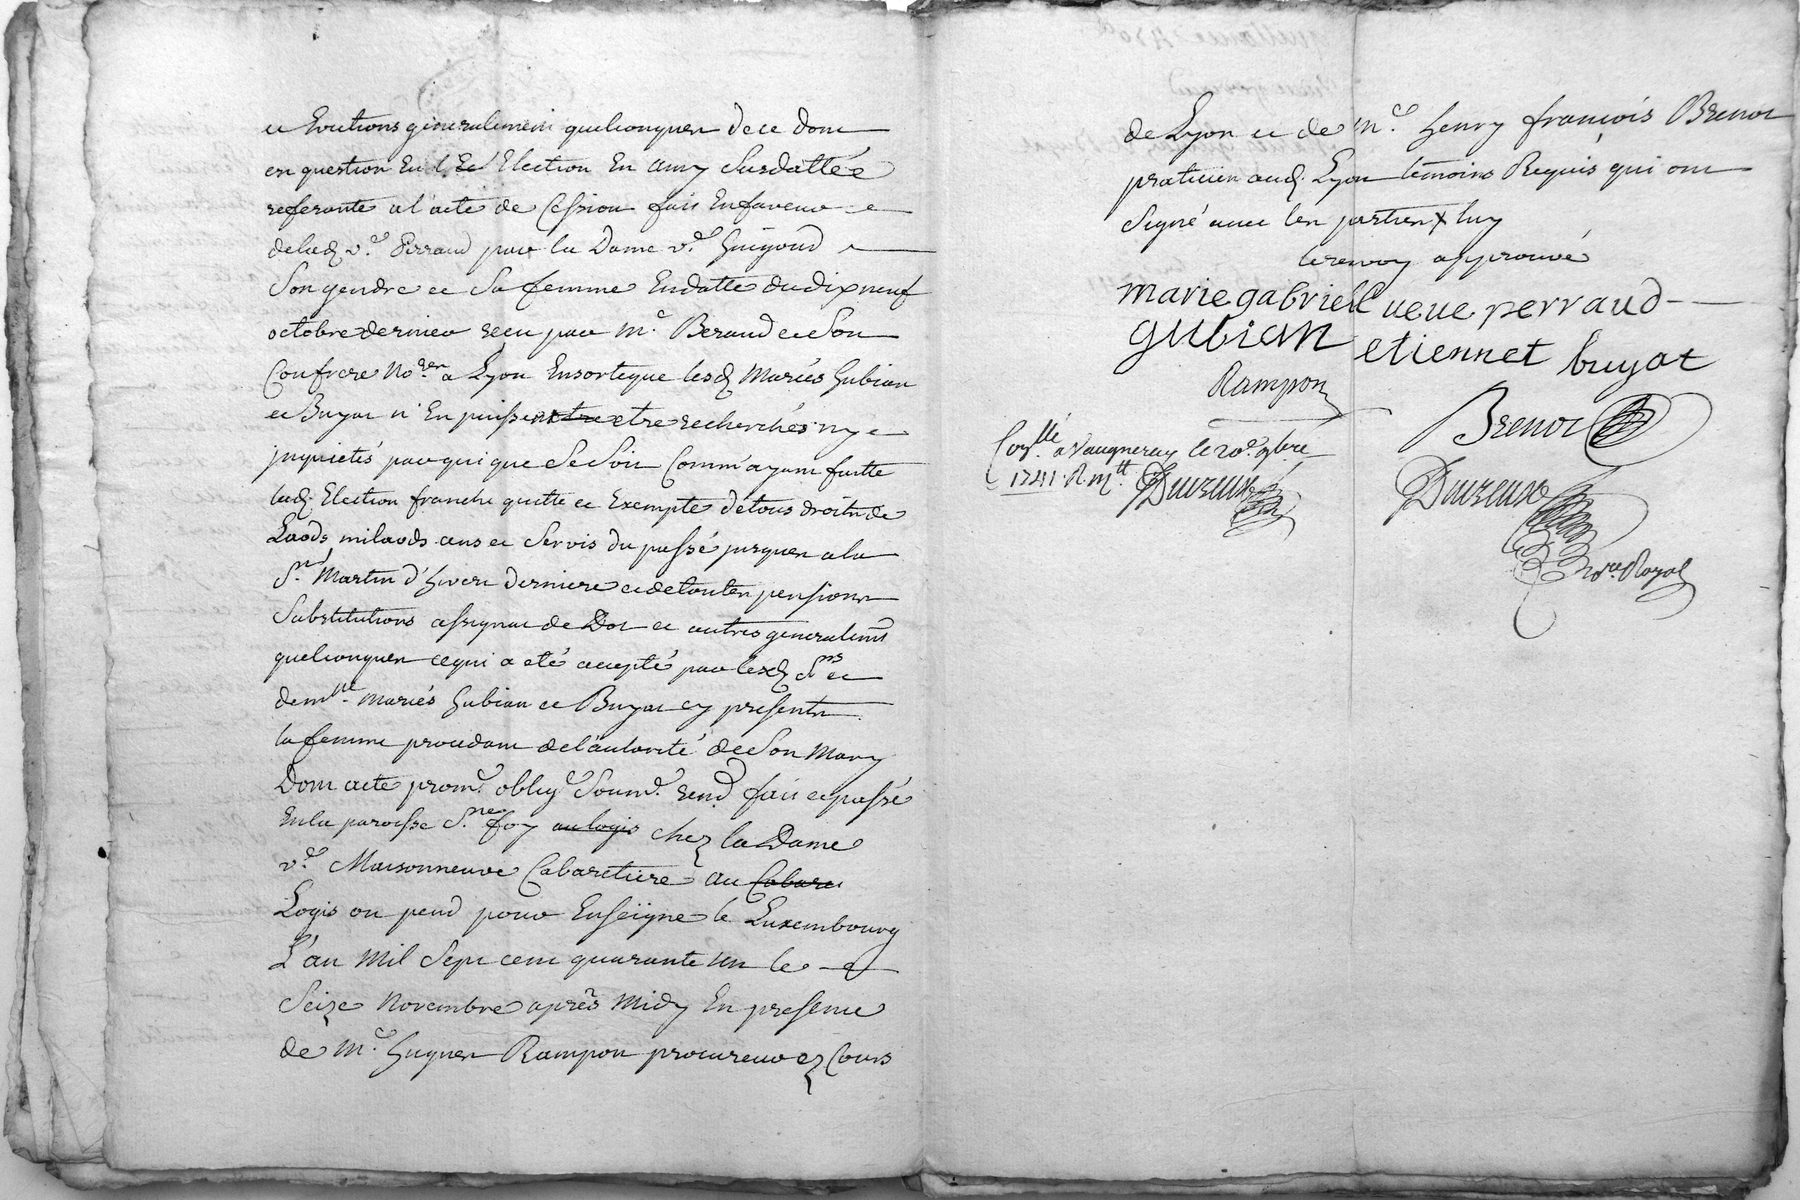 et Evictions generalement quelconques de ce dont
en question en l'Election en amy susdattée
referante a l'acte de Cession fait En faveur
de lad. v.e Perraud par la Dame v.e Guigoud
Son gendre et Sa femme En datte du dix neuf
octobre dernier receu par M.e Beraud et Son
Confrere No.res a Lyon Ensorte que lesd. Mariés Gubian
et Buyat n'En puissent etre recherchés ny
jnquietés par qui que Ce Soit Comm'ayant faitte
lad. Election franche quitte et Exempte de tous droits de
Laods milaods cens et Servis du passé jusques a la
S.t Martin d'hyvert derniere et de toutes pensions
Substitutions assignat de Dot et autres generalem.t
quelconques ce qui a eté accepté par lesd. S.rs et
dem.lle Mariés Gubian et Buyat cy presents
la femme procedant de l'autorité de Son Mary
Dont acte prom.e oblig.e Soum.e rend. fait et passé
En la paroisse S.ne foy au logis chez la Dame
v.e Maisonneuve Cabaretiere au Cabaret
Logis ou pend pour Enseigne le Luxembourg
L'an Mil Sept cent quarante un le
Seize Novembre après Midy En presence
de M.e Hugues Rampon procureur ez Cours
de Lyon et de M.e henry françois Brenot
praticien aud. Lyon temoins Requis qui ont
Signé avec les parties x luy
le renvoy approuvé
marie gabriell veuve perraud
gubian etiennet buyat
Rampon
Brenot
Con.llé a Vaugneray le 20.e 9bre
1741. R. m.tt Duvreux
Duvreux
no.re Royal